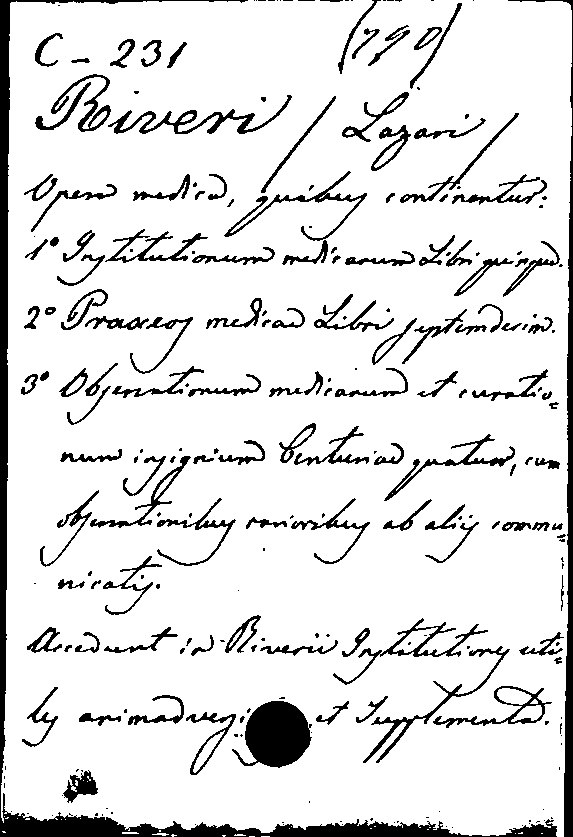 C - 231 (790)
Riveri / Lazari /
Opera medica, quibus continentur:
1º Institutionum medicarum Libri quinque.
2º Praxeos medicae Libri septemdecim.
3º Observationum medicarum et curatio=
num insignium Centuriae quatuor, cum
observationibus rarioribus ab aliis commu=
nicatis.
Accedunt in Riverii Institutiones uti=
les et Supplementa.